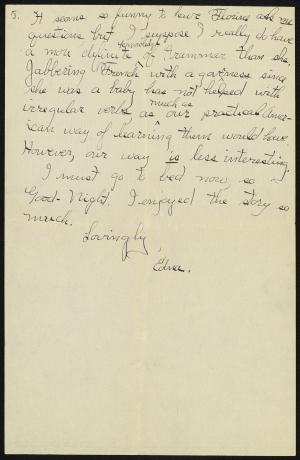 5. It seems so funny to have Thorus ask me
questions but I suppose I really do have
a more definite knowledge of Grammar than she.
Jabbering French with a governess since
she was a baby has not helped with
irregular verbs as much as our practical Amer-
ican way of learning them would have.
However, our way is less interesting.
I must go to bed now, so
Good-Night. I enjoyed the story so
much.
Lovingly,
Edna.